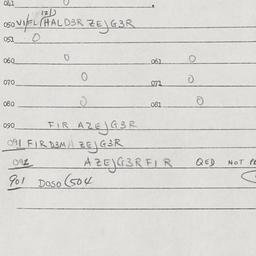 041 0
(2/)
050 VI/FL/HALD3R ZEJG3R
051 0
060 0 061 0
070 0 071 0
080 0 081 0
090 FIR AZEJG3R
091 FIRD3M/ ZEJG3R
092 AZEJG3RFIR QED NOT
901 DOSO (504